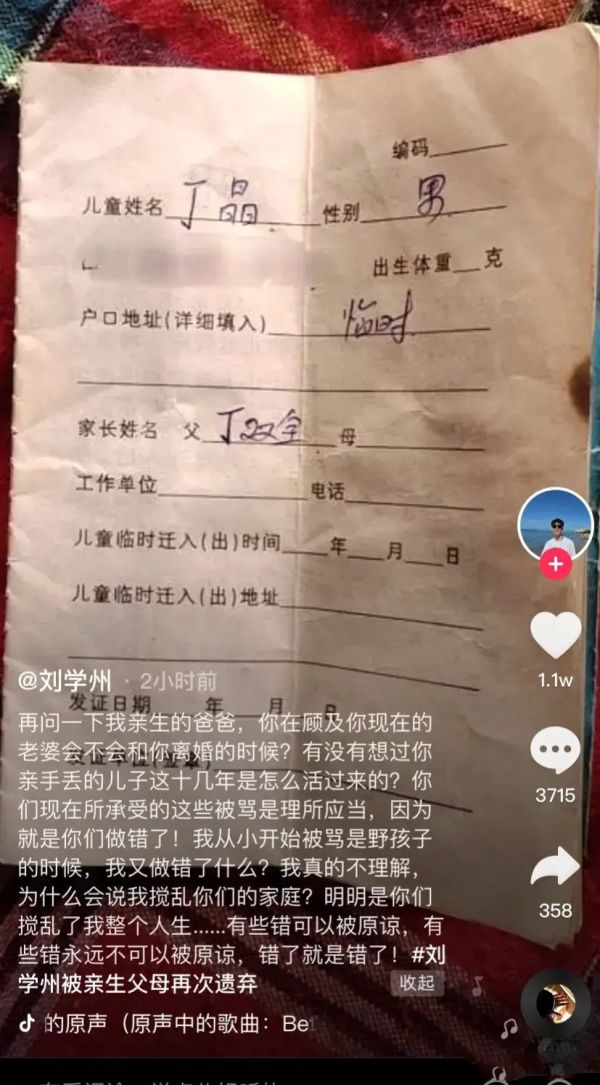 编码
儿童姓名 丁晶 性别 男
出生体重 克
户口地址(详细填入) 临时
家长姓名 父 丁双全 母
工作单位 电话
儿童临时迁入(出)时间 年 月 日
儿童临时迁入(出)地址
@刘学州 · 2小时前
发证日期 年 月 日
再问一下我亲生的爸爸，你在顾及你现在的
老婆会不会和你离婚的时候？有没有想过你
发证单位(盖章)
亲手丢的儿子这十几年是怎么活过来的？你
们现在所承受的这些被骂是理所应当，因为
就是你们做错了！我从小开始被骂是野孩子
的时候，我又做错了什么？我真的不理解，
为什么会说我搅乱你们的家庭？明明是你们
搅乱了我整个人生......有些错可以被原谅，有
些错永远不可以被原谅，错了就是错了！#刘
学州被亲生父母再次遗弃 收起
的原声（原声中的歌曲：Be
1.1w
3715
358